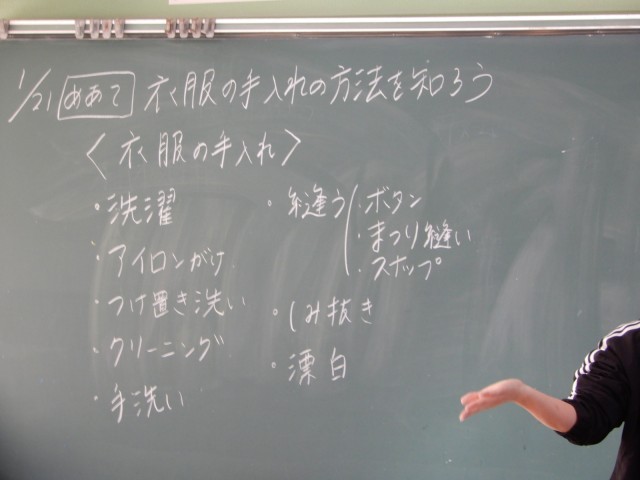 1/21 めあて 衣服の手入れの方法を知ろう
〈衣服の手入れ〉
・洗濯
・アイロンがけ
・つけ置き洗い
・クリーニング
・手洗い
・縫う
・ボタン
・まつり縫い
・スナップ
・しみ抜き
・漂白